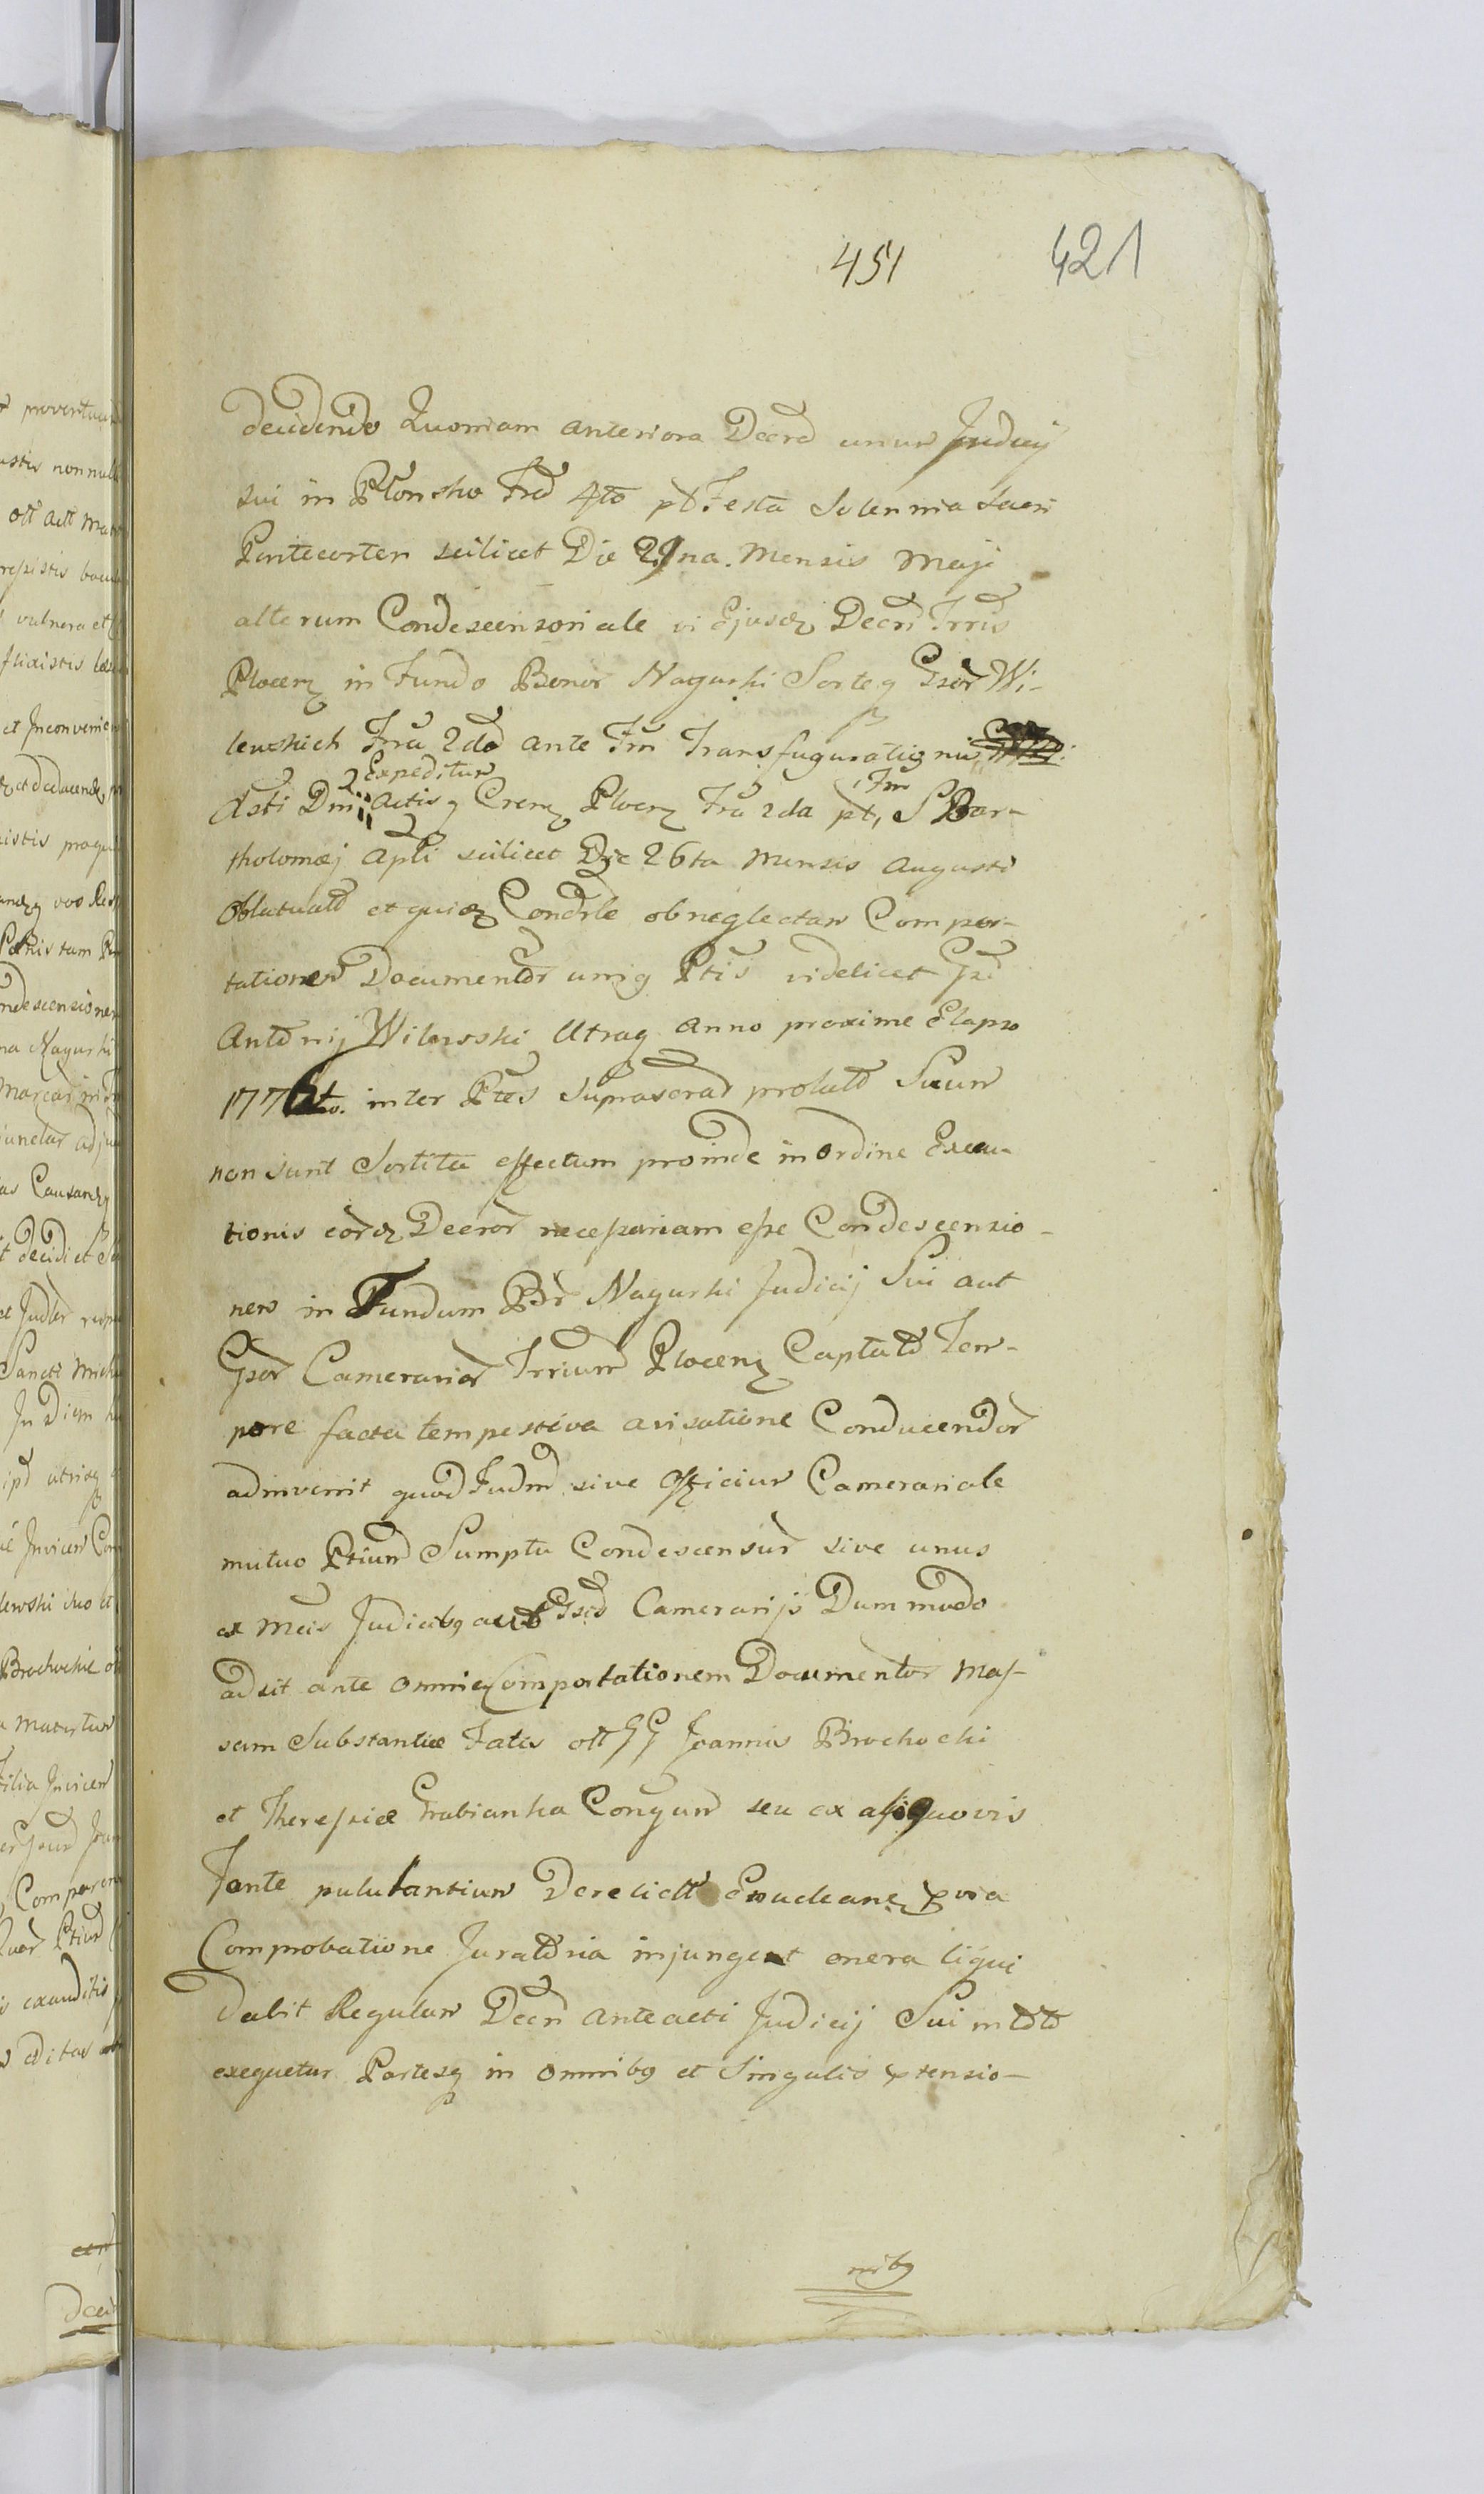 451 421
decidendo Quoniam anteriora Decrã unum Judicij
sui in Płonsko Frã 4to pt Festa Solennia Sacri
Pentecosten scilicet Die 29na. Mensis Maji
alterum Condescensoriale vi Ejusdꝫ Decri Trris
Plocenꝫ in Fundo Bonor Nagurki Sorteꝫ Gsor Wi-
lewskich Fria 2da ante Fm Transfuguratiõnis
Expeditum Fm
Xsti Dm Actisꝫ Crenꝫ Plocenꝫ Fria 2da pt, S Bar-
tholomæj Apli scilicet Die 26ta Mensis Augusti
Oblatum et quidꝫ Condrle ob neglectam Compor-
tationem Documentor unig Ptis videlicet Gsi
Antonij Wilewski Utraq Anno proxime Elapso
1776to. inter Ptes Suprascrã prolatã Suum
non sunt Sortita effectum proinde in ordine Execu-
tionis eordꝫ Decror necessariam esse Condescensio-
nem in Fundum Br Nagurki Judicij Sui aut
Gsor Camerarior Trrium Plocenꝫ Captato Tem-
pore facta tempestiva avisatione Conducendor
adinvenit quod Judm sive Officium Camerariale
mutuo Ptium Sumptu Condescensur sive unus
ex meis Judicibꝫ aut Gsis Camerarijs Dummodo
adsit ante omnia Comportationem Documentor Mas-
sam Substantiæ Fatis olt GG Joannis Brochocki
et Theressiæ Grabianka Conjgum seu ex aliquovis
Fonte pululantium Derelictt Enucleanꝫ prvia
Comprobatione Juratoria injunget onera liqui
dabit Regulam Decri anteacti Judicij Sui in toto
exequetur Partesꝫ in omnibꝫ et Singulis prtensio-
nibꝫ